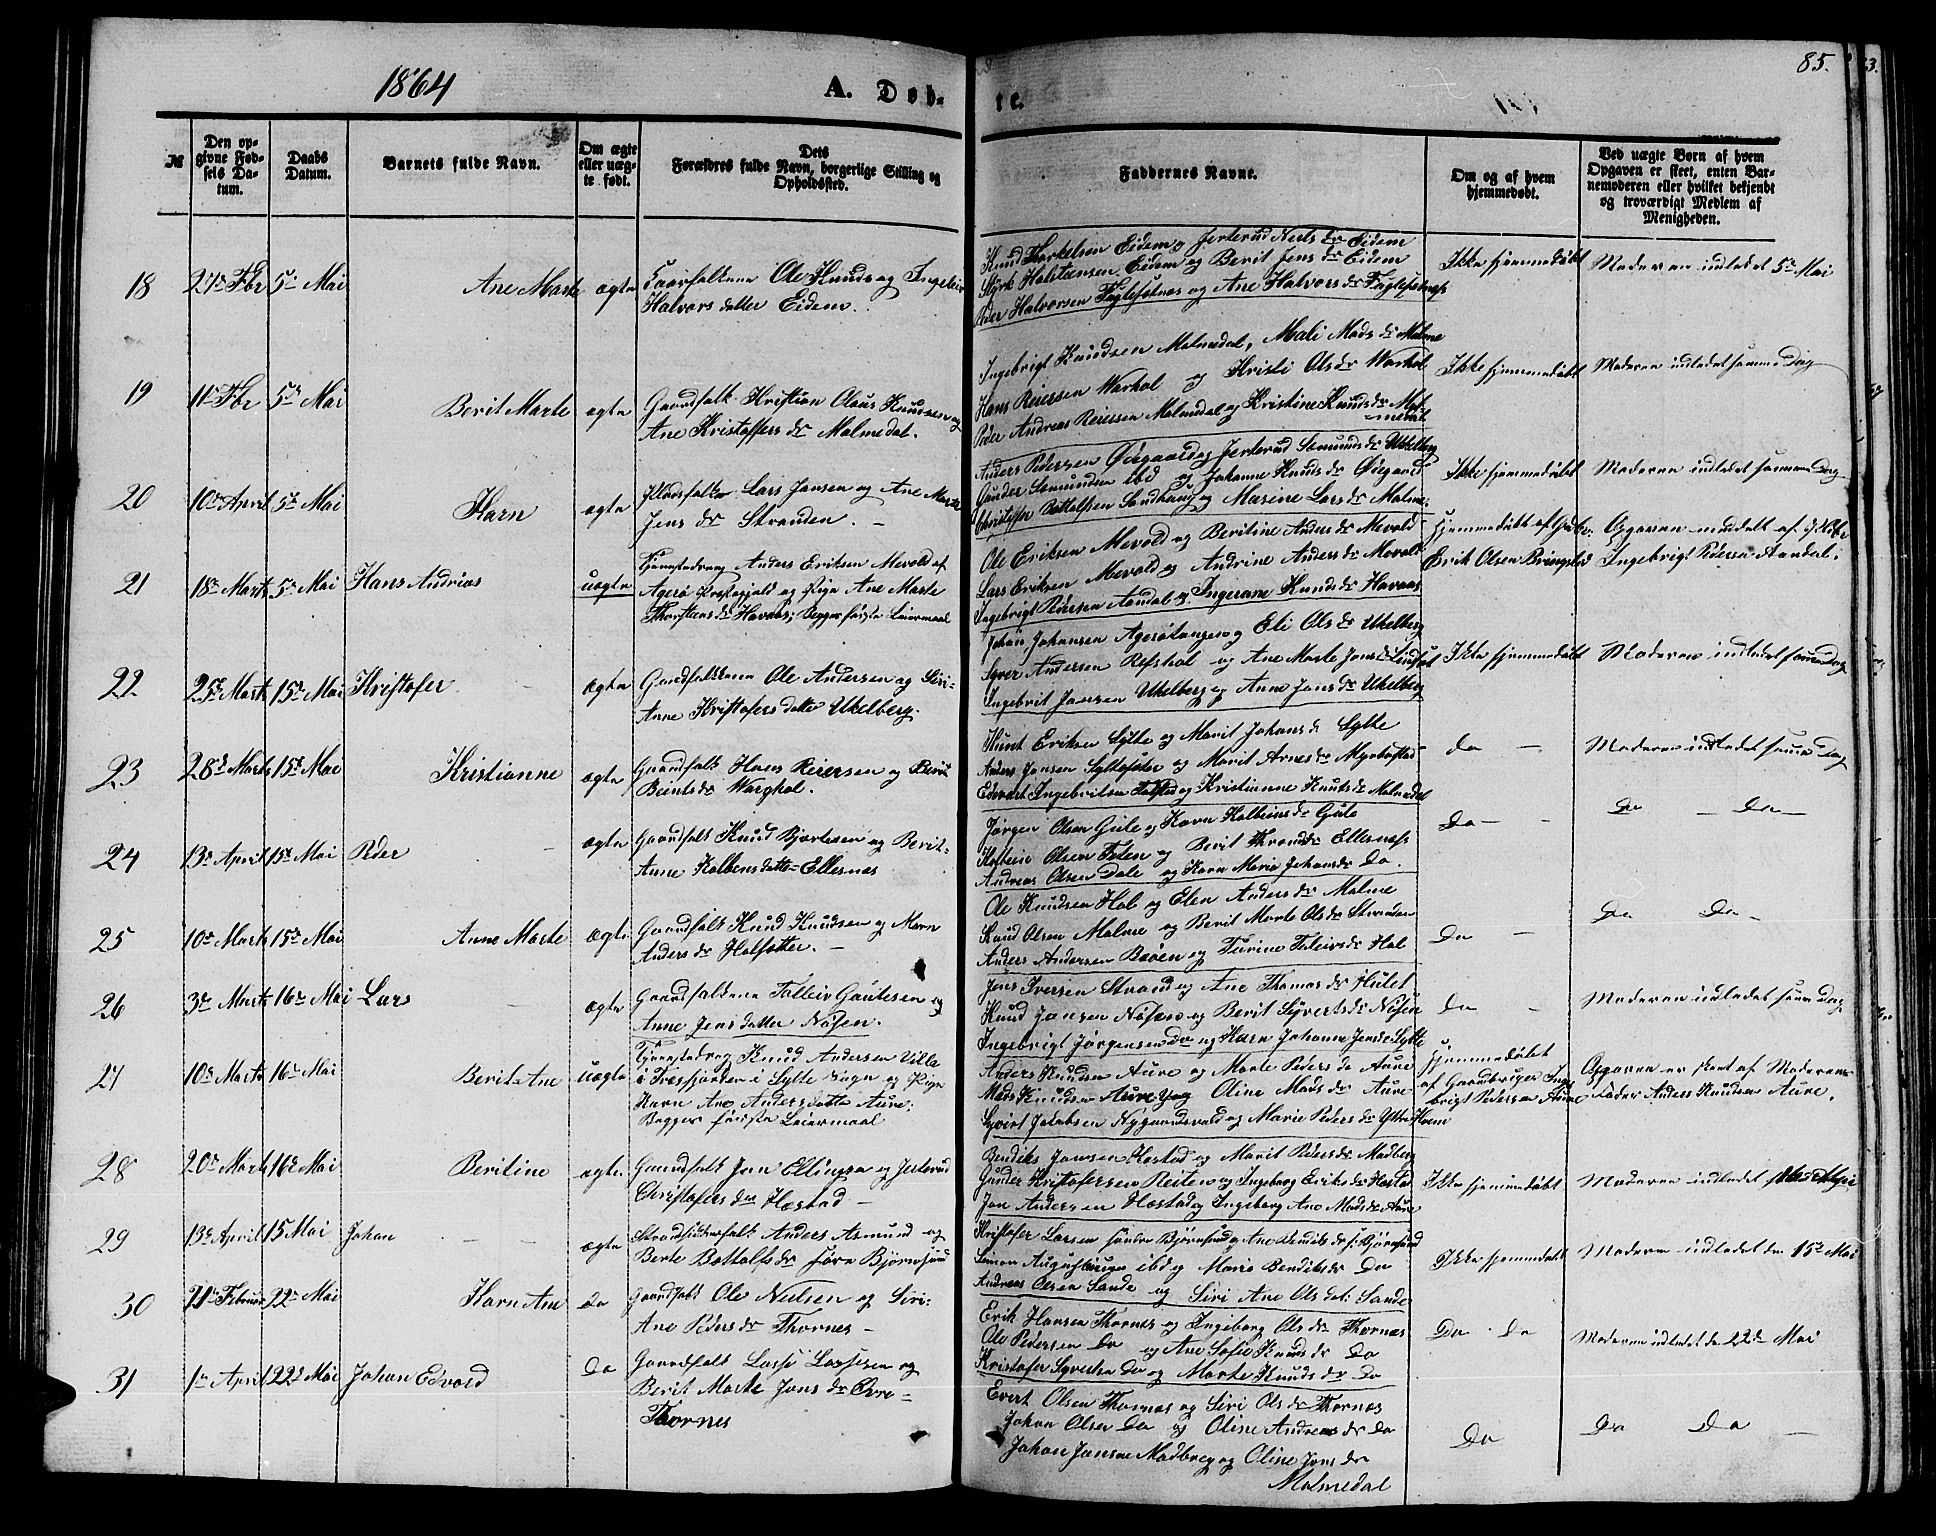 1864
A. Døb-
te.
85.
№
Den op-
givne Fød-
sels Da-
tum.
Daabs
Datum.
Barnets fulde Navn.
Om ægte
eller uæg-
te født.
Dets
Forældres fulde Navn, borgerlige Stilling og
Opholdssted.
Faddernes Navne.
Om og af hvem
hjemmedøbt.
Ved uægte Born af hvem
Opgaven er skeet, enten Bar-
nemoderen eller hvilket bekjendt
og troværdigt Medlem af
Menigheden.
18 27de Fbr 5te Mai Ane Marte ægte Ole Knuds og Ingebor
Halvors datter Eidem.
Knud Torkelsen Eidem og Jertrud Niels dr Eidem
Styrk Halstensen Eidem og Berit Jens dr Eidem
Peder Halvorsen Fuglesetnes og Ane Halvors dr Fuglesetnes
Ikke hjemmedøbt
Moderen indledet 5te Mai
19 11te Fbr 5te Mai Berit Marte ægte Gaardfolk Kristian Olaus Knudsen og
Ane Kristoffers dr Malmedal.
Ingebrigt Knudsen Malmedal, Mali Mads dr Malme
Hans Reiersen Warhol og Kristi Ols dr Warhol
Peder Andreas Reiersen Malmedal og Kristine Knuds dr Mal-
medal
Ikke hjemmedøbt
Moderen indledet samme Dag
20 10de April 5te Mai Karn ægte Pladsfolk Lars Jansen og Ane Marte
Jens dr Stranden. —
Anders Pedersen Ødegaard og Jertrud Semunds dr Ukkelberg
Gunder Semundsen ibd og Johanne Knuds dr Øiegaard
Christoffer Bottolfsen Sandhaug og Marine Lars dr Malme
Ikke hjemmedøbt
Moderen indledet samme Dag
21 18de Marts 5te Mai Hans Andrias uægte Tjenestedreng Anders Eriksen Mevold af
Agerø Prestegjeld og Pige Ane Marte
Thorstens dr Havaas; Begges første Leiermaal
Ole Eriksen Mevold og Beritine Anders dr Mevold
Lars Eriksen Mevold og Andrine Anders dr Mevold
Ingebrigt Pedersen Aandal og Ingerane Knuds dr Havaas
hjemmedøbt af
Erik Olsen Bringsted
Opgaven meddelt af
Ingebrigt Pedersen Aandal.
22 25de Marts 15de Mai Kristofer ægte Gaardfolkene Ole Andersen og Siri-
Anne Kristofers datter Ukelberg.
Johan Johansen Agerøtangen og Eli Ols dr Ukelberg
Syver Andersen Refshol og Ane Marte Jons dr Lindset
Ingebrit Jansen Ukelberg og Anne Jans dr Ukelberg
Ikke hjemmedøbt
Moderen indledet samme Dag
23 28de Marts 15de Mai Kristianne ægte Gaardfolk Hans Reiersen og Berit
Beints dr Warghol.
Knut Eriksen Sylte og Marit Johans d Sylte
Anders Jansen Syltesæter og Marit Arnes dr Myrbostad
Edevart Ingebritsen Tolstad og Kristianne Knuts dr Malmedal
Do —
Moderen indledet samme Dag
24 13de April 15de Mai Peder — ægte Gaardfolk Knud Bjørlesen og Berit-
Anne Kolbens datter Ellesnes
Jørgen Olsen Gule og Karn Kolbeins dr Gule
Kolbein Olsen Toten og Berit Thrans dr Ellesnes
Andreas Olsen Dale og Karn Maria Johans dr Do.
Do — —
Do — Do —
25 10de Marts 15de Mai Anne Marte ægte Gaardfolk Knud Knudsen og Marn
Anders dr Holsetter. —
Ole Knudsen Hol og Elen Anders dr Malme
Knud Olsen Malme og Berit Marte Ols dr Stranden
Anders Andersen Bøen og Turine Toleivs dr Hol
Do —
Do Do —
26 3de Marts 16de Mai Lars — ægte Gaardfolkene Tolleiv Gautesen og
Anne Jens datter Nøsen.
Jens Iversen Strand og Ane Thomas dr Hulet
Knud Jansen Nøsen og Berit Syverts dr Nøsen
Ingebrigt Jørgensen Do og Karn Johanne Jens dr Sylte
Do —
Moderen indledet samme Dag
27 10de Marts 16de Mai Berit Ane uægte Tjenestedreng Knud Andersen Villa
i Tresfjorden i Sylte Sogn og Pige
Karn Ane Anders datter Aure;
Begges første Leiermaal
Anders Knudsen Aure og Marte Peders dr Aure
Mads Knudsen Aure og Oline Mads dr Aure
Syvert Jakobsen Nygaardsvold og Marie Peders dr Ytterhvem
Hjemmedøbt
af Gaardbruger Inge-
brigt Pedersen Aure
Opgaven er skeet af Moderens
Fader Anders Knudsen Aure.
28 20de Marts 16de Mai Beritine ægte Gaardfolk Jon Ellingsen og Jertrud
Christofers dr Hostad —
Bendiks Jansen Hostad og Marit Peders dr Madberg
Gunder Kristofersen Reiten og Ingeborg Eriks dr Hostad
Jon Andersen Hostad og Ingeborg Ane Mads dr Aure
Ikke hjemmedøbt
Moderen indledet
29 13de April 15 Mai Johan — — ægte Strandsidderfolk Anders Asmund og
Berte Bottolfs dr søre Bjørnsund
Kristofer Larsen søndre Bjørnsund og Ane Bendiks dr s. Bjørnsund
Simon Augustinusen ibd og Marie Bendiks dr Do
Andreas Olsen Sande og Siri Ane Ols dat: Sande
Ikke hjemmedøbt
Moderen indledet den 15de Mai
30 21de Februar 22de Mai Karn Ane do Gaardfolk Ole Nielsen og Siri-
Ane Peders dr Thornes —
Erik Hansen Thornes og Ingeborg Ols dr Thornæs
Ole Pedersen Do og Ane Sofie Knuds dr Do
Kristofer Syvertsen Do og Marte Knuds dr Do
Do Do
Moderen indledet den 22de Mai
31 1te April 22de Mai Johan Edvard Do Gaardfolk Lasse Lassesen og
Berit Marte Jons dr Øvre-
Thornes
Evert Olsen Thornæs og Siri Ols dr Thornæs
Johan Olsen Do og Oline Andreas dr Do
Johan Jansen Madberg og Oline Jons dr
Malmedal
Do
Do Do —